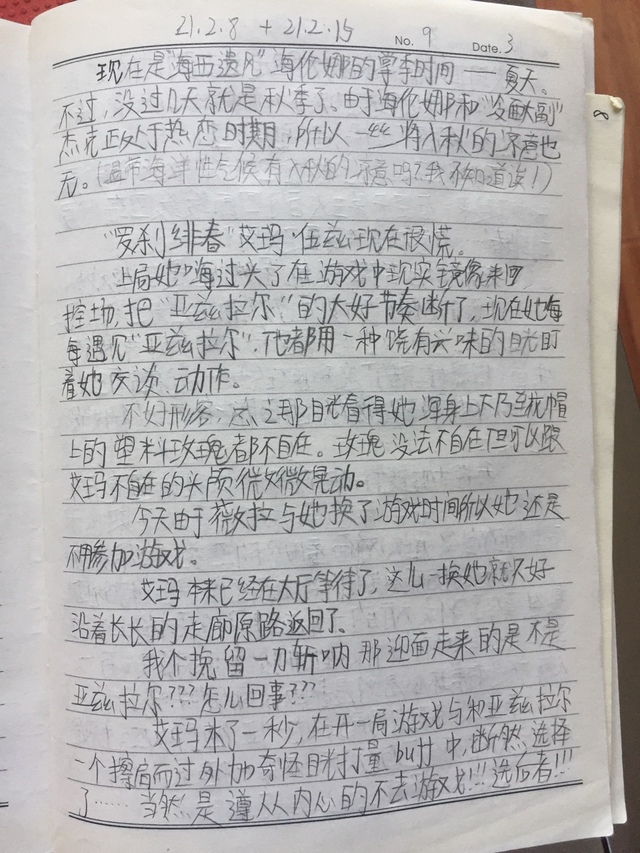 21.2.8 + 21.2.15
No. 9 Date. 3
现在是“海西遗凡”海伦娜的掌季时间——夏天。
不过，没过几天就是秋季了。由于海伦娜和“没面大副”
杰克正处于热恋时期，所以一丝将入秋的凉意也
无。（温带海洋性气候有入秋的凉意吗？我不知道诶！）
“罗刹绯春”艾玛·伍兹现在很慌。
上局她嗨过头了在游戏中现实镜像来回
控场，把“亚兹拉尔”的大好节奏断了，现在她每
每遇见“亚兹拉尔”，他都用一种饶有兴味的目光盯
着她 动作。
不好形容，总之那目光看得她浑身上下乃至软帽
上的塑料玫瑰都不自在。玫瑰没法不自在但可以跟
艾玛不自在的头颅微微晃动。
今天由于薇拉与她换了游戏时间所以她还是
不用参加游戏。
艾玛本来已经在大厅等待了，这么一换她就只好
沿着长长的走廊原路返回了。
我个挽留一刀斩呐那迎面走来的是不是
亚兹拉尔？？？怎么回事？？？
艾玛木了一秒，在开一局游戏与和亚兹拉尔
一个擦肩而过外加奇怪目光打量buff中，断然选择
了……当然是遵从内心的不去游戏！！！选后者！！！
8